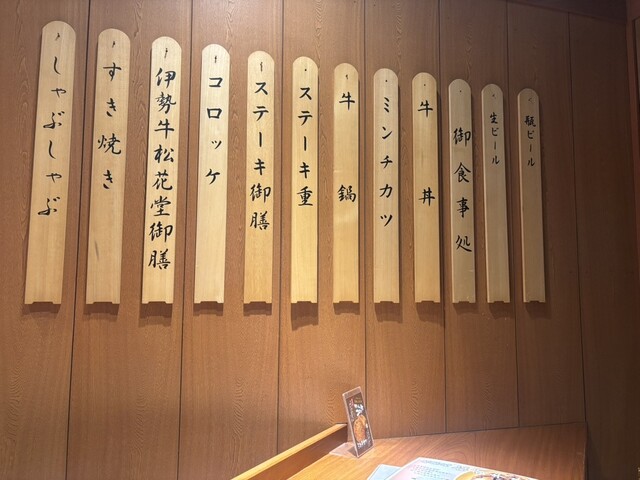 瓶ビール
生ビール
御食事処
牛丼
ミンチカツ
牛鍋
ステーキ重
ステーキ御膳
コロッケ
伊勢牛松花堂御膳
すき焼き
しゃぶしゃぶ